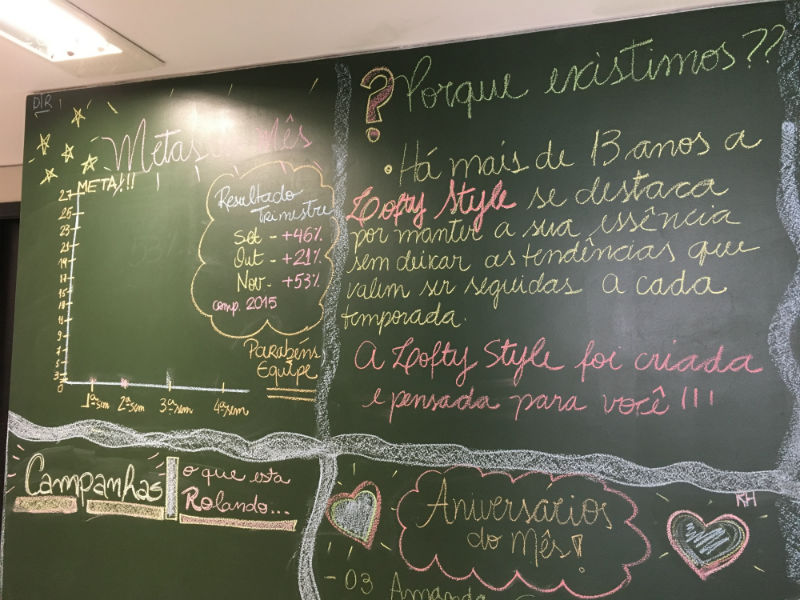 DIR
Metas do Mês
META!!!
27
25
23
21
19
17
15
13
11
9
7
5
3
0
1ª sem 2ª sem 3ª sem 4ª sem
Resultado
Trimestre
Set - +46%
Out - +21%
Nov - +53%
comp. 2015
Parabéns
Equipe
? Porque existimos??
• Há mais de 13 anos a
Lofty Style se destaca
por manter a sua essência
sem deixar as tendências que
valem ser seguidas a cada
temporada.
A Lofty Style foi criada
e pensada para você!!!
Campanhas
o que esta
Rolando...
RH
Aniversários
do Mês!
- 03 Amanda